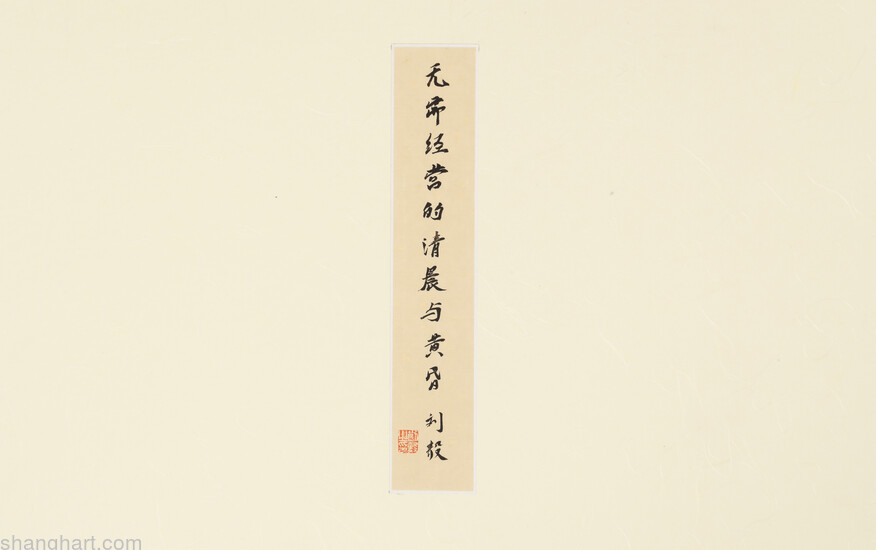 无需经营的清晨与黄昏 刘毅
shanghart.com